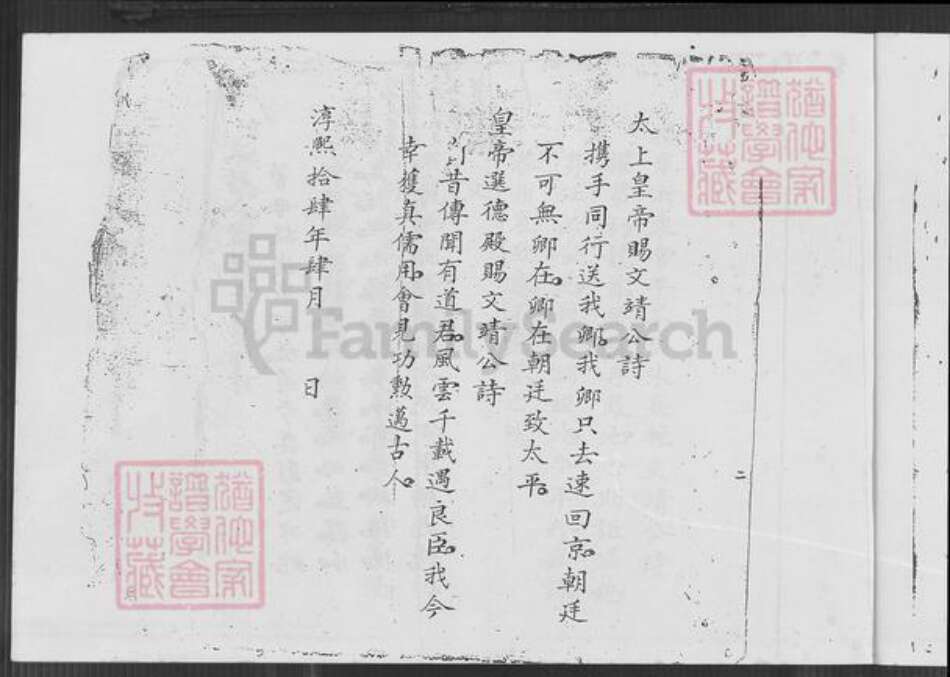 太上皇帝賜文靖公詩
携手同行送我卿。我卿只去速回京。朝廷
不可無卿在。卿在朝廷致太平。
皇帝選德殿賜文靖公詩
昔傳聞有道君。風雲千載遇良臣。我今
幸獲真儒用。會見功勲邁古人。
淳熙拾肆年肆月　　日
二
FamilySearch